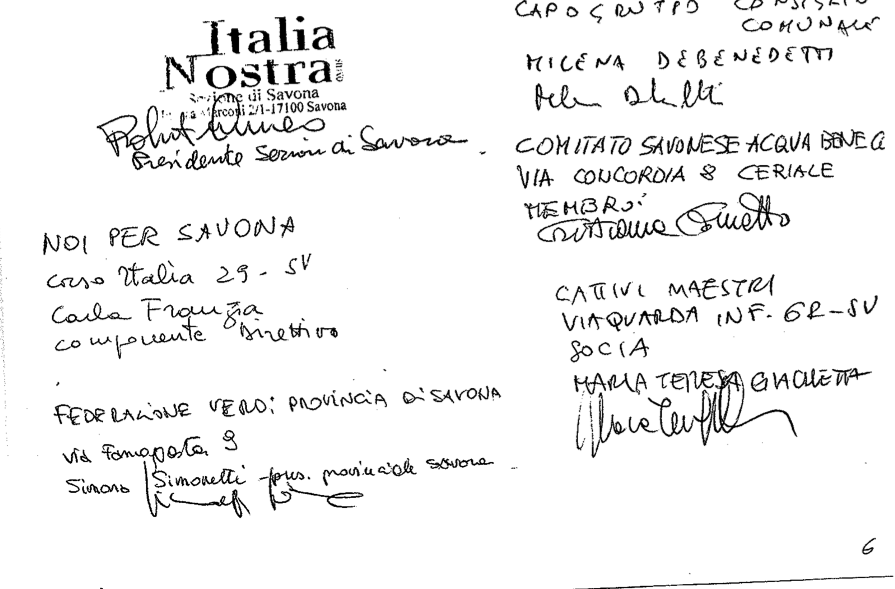 Italia
Nostra
Sezione di Savona
Marconi 2/1-17100 Savona
Presidente Sezione di Savona
NOI PER SAVONA
corso Italia 29 - SV
Carla
componente Direttivo
FEDERAZIONE VERDI PROVINCIA DI SAVONA
via Famagosta 9
Simona Simonetti - pres. provinciale savona
CAPOGRUPPO CONSIGLIO
COMUNALE
MILENA DEBENEDETTI
COMITATO SAVONESE ACQUA BENE C
VIA CONCORDIA 8 CERIALE
MEMBRO:
CATTIVI MAESTRI
VIA QUARDA INF. 6R-SV
SOCIA
MARIA TERESA GIACHETTA
6